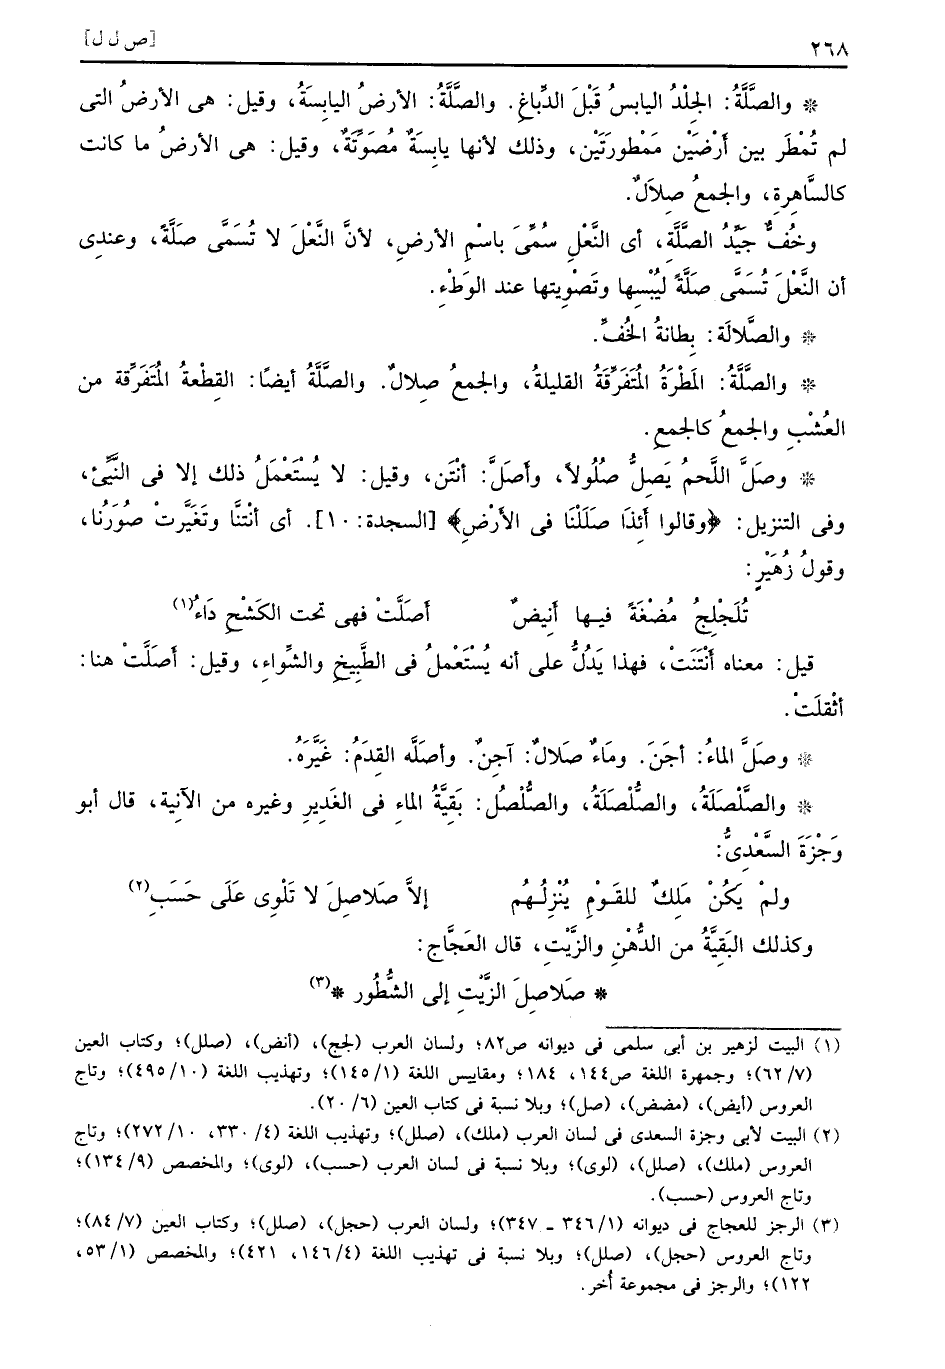 ٢٦٨
[ص ل ل]
* والصَّلَّةُ: الجِلْدُ اليابسُ قَبْلَ الدِّباغِ. والصَّلَّةُ: الأرضُ اليابِسَةُ، وقيل: هى الأرضُ التى
لم تُمْطَر بين أَرْضَيْن مَمْطورَتَيْن، وذلك لأنها يابِسَةٌ مُصَوِّتَةٌ، وقيل: هى الأرضُ ما كانت
كالسَّاهِرةِ، والجمعُ صِلاَلٌ.
وخُفٌّ جَيِّدُ الصَّلَّةِ، أى النَّعْلِ سُمِّىَ باسْمِ الأرضِ، لأنَّ النَّعْلَ لا تُسَمَّى صَلَّةً، وعندِى
أن النَّعْلَ تُسَمَّى صَلَّةً ليُبْسِها وتَصْوِيتها عند الوَطْءِ.
* والصَّلالَة: بِطانةُ الخُفِّ.
* والصَّلَّةُ: المَطْرَةُ المُتَفَرِّقَةُ القليلةُ، والجمعُ صِلالٌ. والصَّلَّةُ أيضًا: القطعةُ المُتَفَرِّقة من
العُشْبِ والجمعُ كالجمعِ.
* وصَلَّ اللَّحمُ يَصِلُّ صُلُولاً، وأَصَلَّ: أنْتَن، وقيل: لا يُسْتَعْمَلُ ذلك إلا فى النَّيِّئ،
وفى التنزيل: ﴿وقالوا أَئذَا صَلَلْنَا فى الأرْضِ﴾ [السجدة: ١٠]. أى أنْتنَّا وتَغَيَّرتْ صُوَرُنا،
وقولُ زُهَيْرٍ:
تُلَجْلِجُ مُضْغَةً فيها أَنِيضٌ أَصَلَّتْ فهى تحت الكَشْحِ دَاءُ(١)
قيل: معناه أَنْتَنَتْ، فهذا يَدُلُّ على أنه يُسْتَعْملُ فى الطَّبِيخِ والشِّواءِ، وقيل: أَصَلَّتْ هنا:
أثْقلَتْ.
* وصَلَّ الماءُ: أجَنَ. ومَاءٌ صَلالٌ: آجِنٌ. وأصَلَّه القِدَمُ: غَيَّرَهُ.
* والصَّلْصَلَةُ، والصُّلْصَلَةُ، والصُّلْصُلُ: بَقِيَّةُ الماءِ فى الغَدِيرِ وغيره من الآنية، قال أبو
وَجْزَةَ السَّعْدِىُّ:
ولمْ يَكُنْ مَلِكٌ للقَوْمِ يُنْزِلُهُم إلاَّ صَلاصِلَ لا تَلْوِى عَلَى حَسَبِ(٢)
وكذلك البَقِيَّةُ من الدُّهْنِ والزَّيْتِ، قال العَجَّاج:
* صَلاصِلَ الزَّيْتِ إلى الشُّطُور *(٣)
(١) البيت لزهير بن أبى سلمى فى ديوانه ص٨٢؛ ولسان العرب (لجج)، (أنض)، (صلل)؛ وكتاب العين
(٧/ ٦٢)؛ وجمهرة اللغة ص١٤٤، ١٨٤؛ ومقاييس اللغة (١/ ١٤٥)؛ وتهذيب اللغة (١٠/ ٤٩٥)؛ وتاج
العروس (أيض)، (مضض)، (صل)؛ وبلا نسبة فى كتاب العين (٦/ ٢٠).
(٢) البيت لأبى وجزة السعدى فى لسان العرب (ملك)، (صلل)؛ وتهذيب اللغة (٤/ ٣٣٠، ١٠/ ٢٧٢)؛ وتاج
العروس (ملك)، (صلل)، (لوى)؛ وبلا نسبة فى لسان العرب (حسب)، (لوى)؛ والمخصص (٩/ ١٣٤)؛
وتاج العروس (حسب).
(٣) الرجز للعجاج فى ديوانه (١/ ٣٤٦ ـ ٣٤٧)؛ ولسان العرب (حجل)، (صلل)؛ وكتاب العين (٧/ ٨٤)؛
وتاج العروس (حجل)، (صلل)؛ وبلا نسبة فى تهذيب اللغة (٤/ ١٤٦، ٤٢١)؛ والمخصص (١/ ٥٣،
١٢٢)؛ والرجز فى مجموعة أُخر.